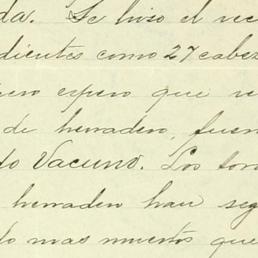 da. Se hiso el rec
dientes como 27 cabez
ero espero que re
de herradero, fuer
do Vacuno. Los toro
herraden han seg
do mas muertos que